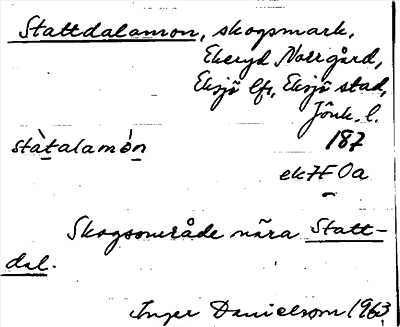 Stattdalamon, skogsmark,
Ekeryd Norrgård,
Eksjö lfs, Eksjö stad,
Jönk. l.
187
stàtalamón
ek7F0a
Skogsområde nära Statt-
dal.
Inger Danielsson 1963